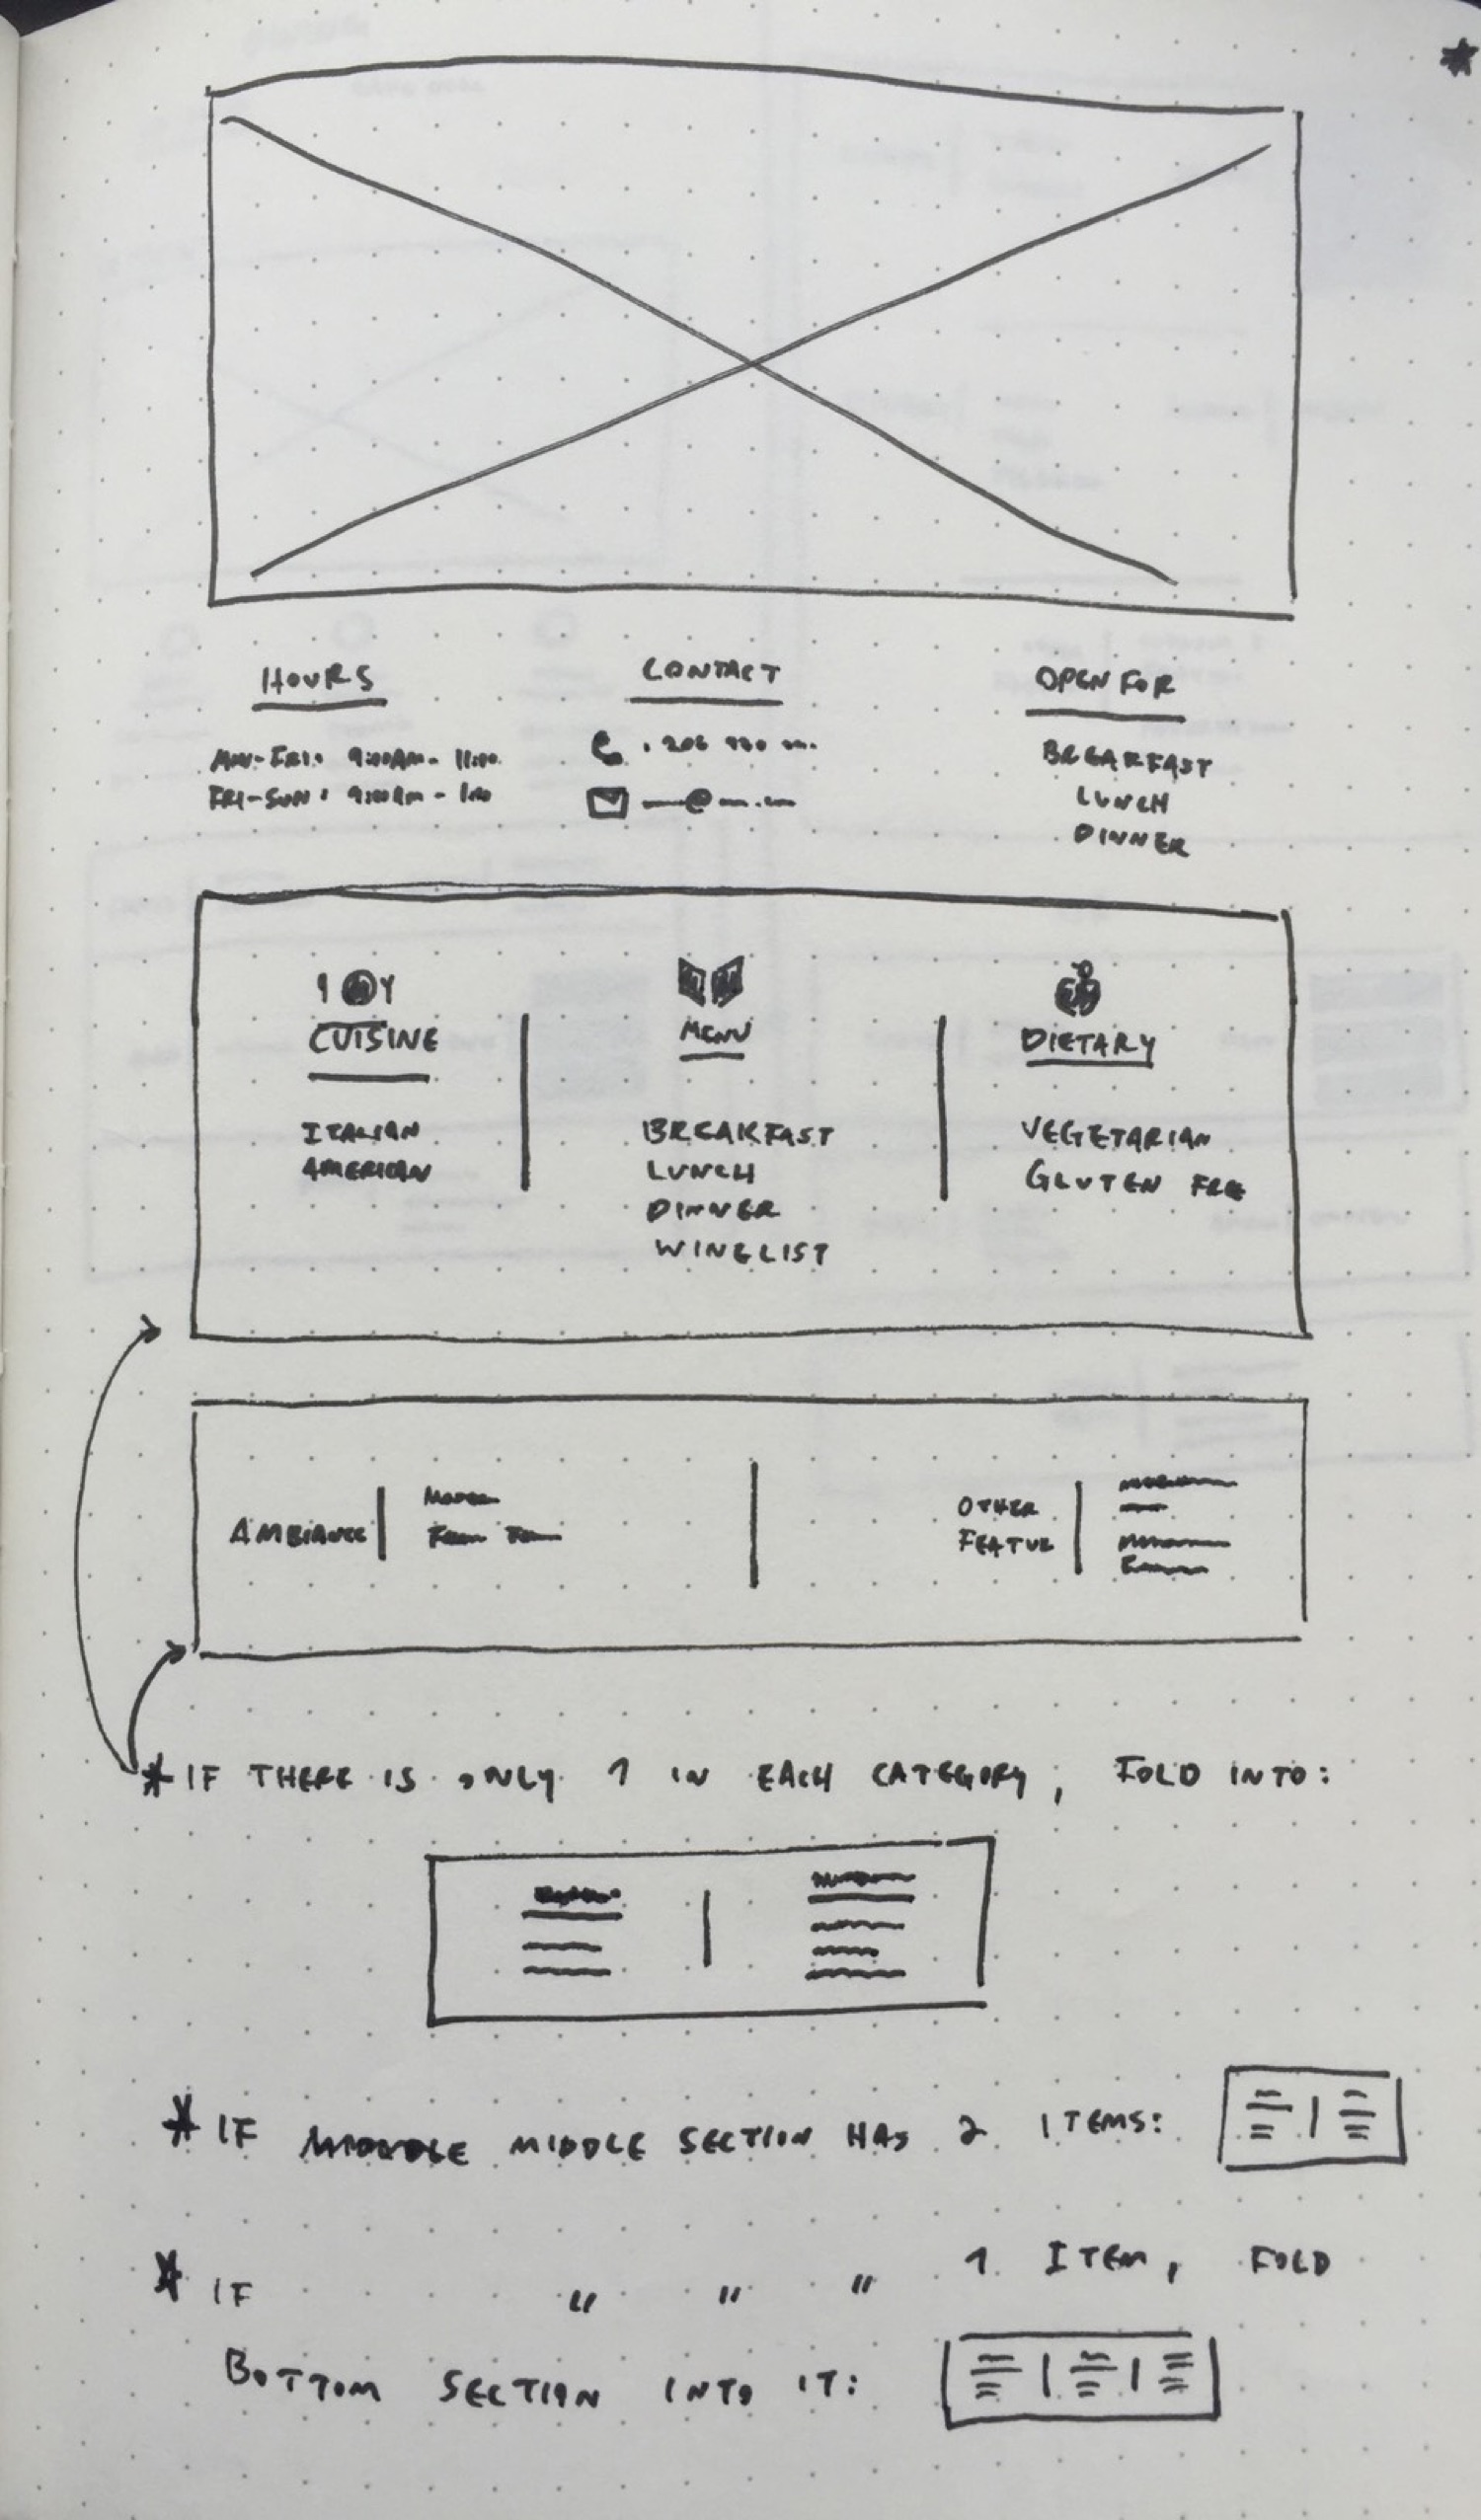 HOURS
MON-FRI: 9:00AM - 11:00
FRI-SUN: 9:00AM - 1:00
CONTACT
206
@
OPEN FOR
BREAKFAST
LUNCH
DINNER
CUISINE
ITALIAN
AMERICAN
MENU
BREAKFAST
LUNCH
DINNER
WINE LIST
DIETARY
VEGETARIAN
GLUTEN FREE
AMBIANCE
OTHER
FEATUR
* IF THERE IS ONLY 1 IN EACH CATEGORY, FOLD INTO:
* IF MIDDLE SECTION HAS 2 ITEMS:
* IF " " " 1 ITEM, FOLD
BOTTOM SECTION INTO IT: